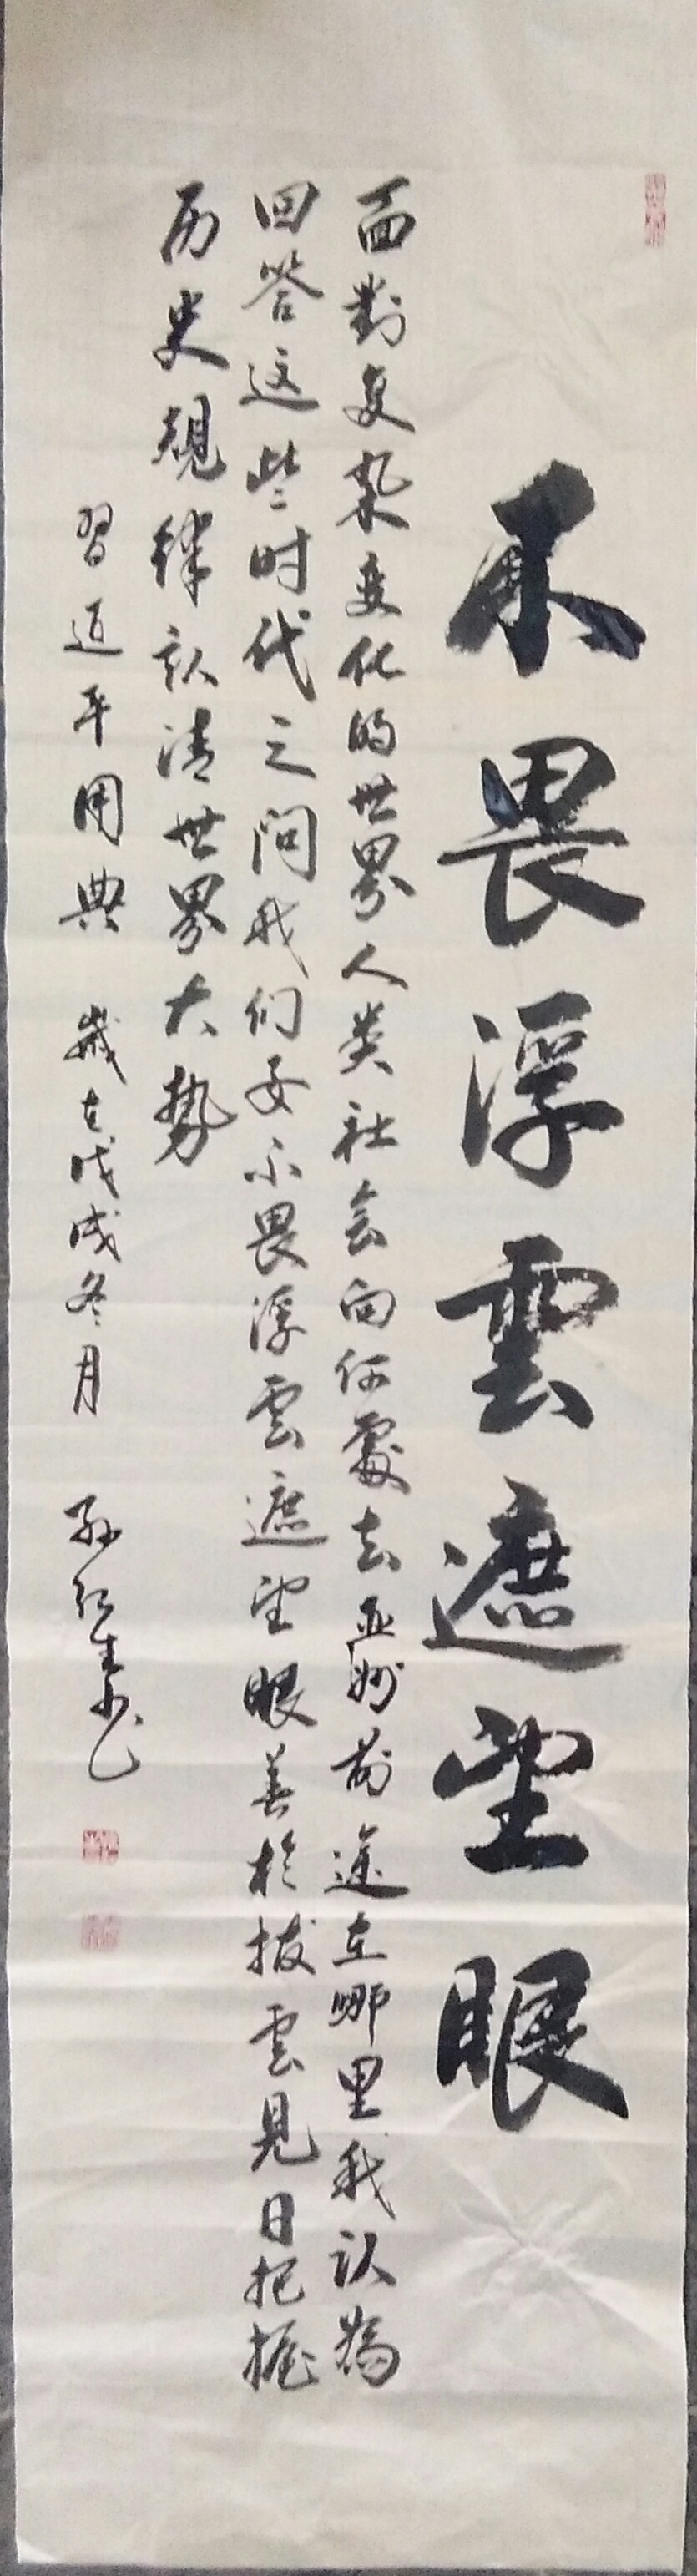 不畏浮雲遮望眼
面對复杂变化的世界人类社会向何處去亚洲前途在哪里我认為
回答这些时代之问我们要不畏浮雲遮望眼善於拨雲見日把握
历史規律认清世界大势
習近平用典 歲在戊戌冬月 孙红生书